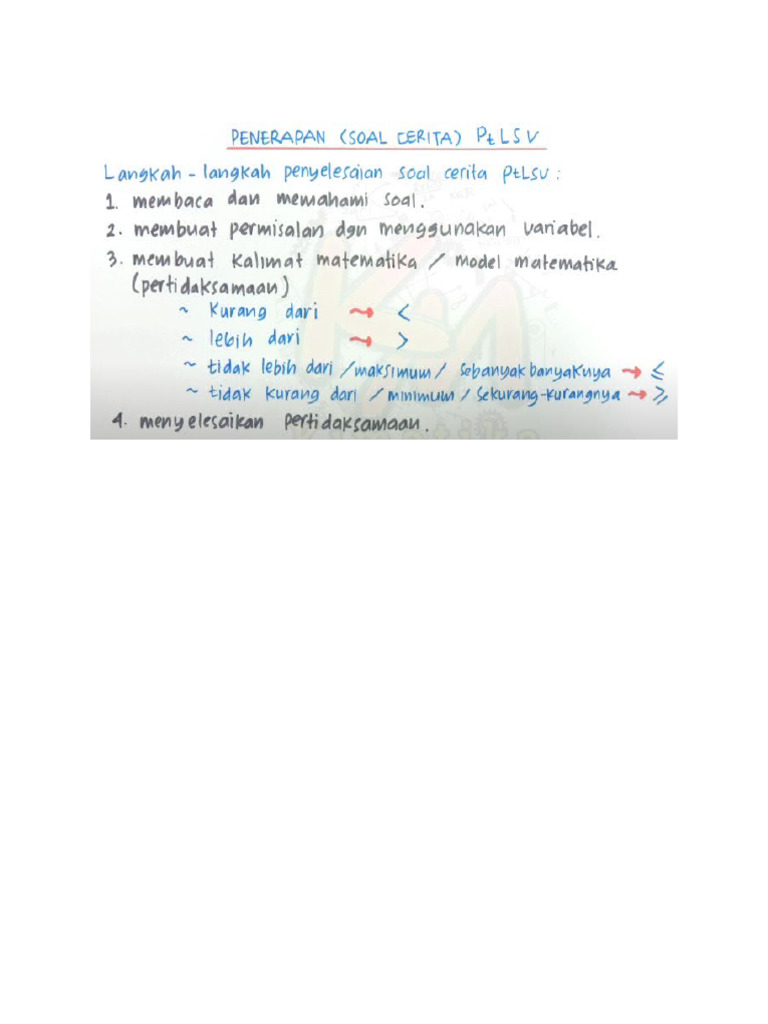 PENERAPAN (SOAL CERITA) PtLSV
Langkah - langkah penyelesaian soal cerita PtLSV :
1. membaca dan memahami soal.
2. membuat permisalan dgn menggunakan variabel.
3. membuat kalimat matematika / model matematika
(pertidaksamaan)
~ kurang dari → <
~ lebih dari → >
~ tidak lebih dari / maksimum / sebanyak banyaknya → ≤
~ tidak kurang dari / minimum / sekurang-kurangnya → ≥
4. menyelesaikan pertidaksamaan.